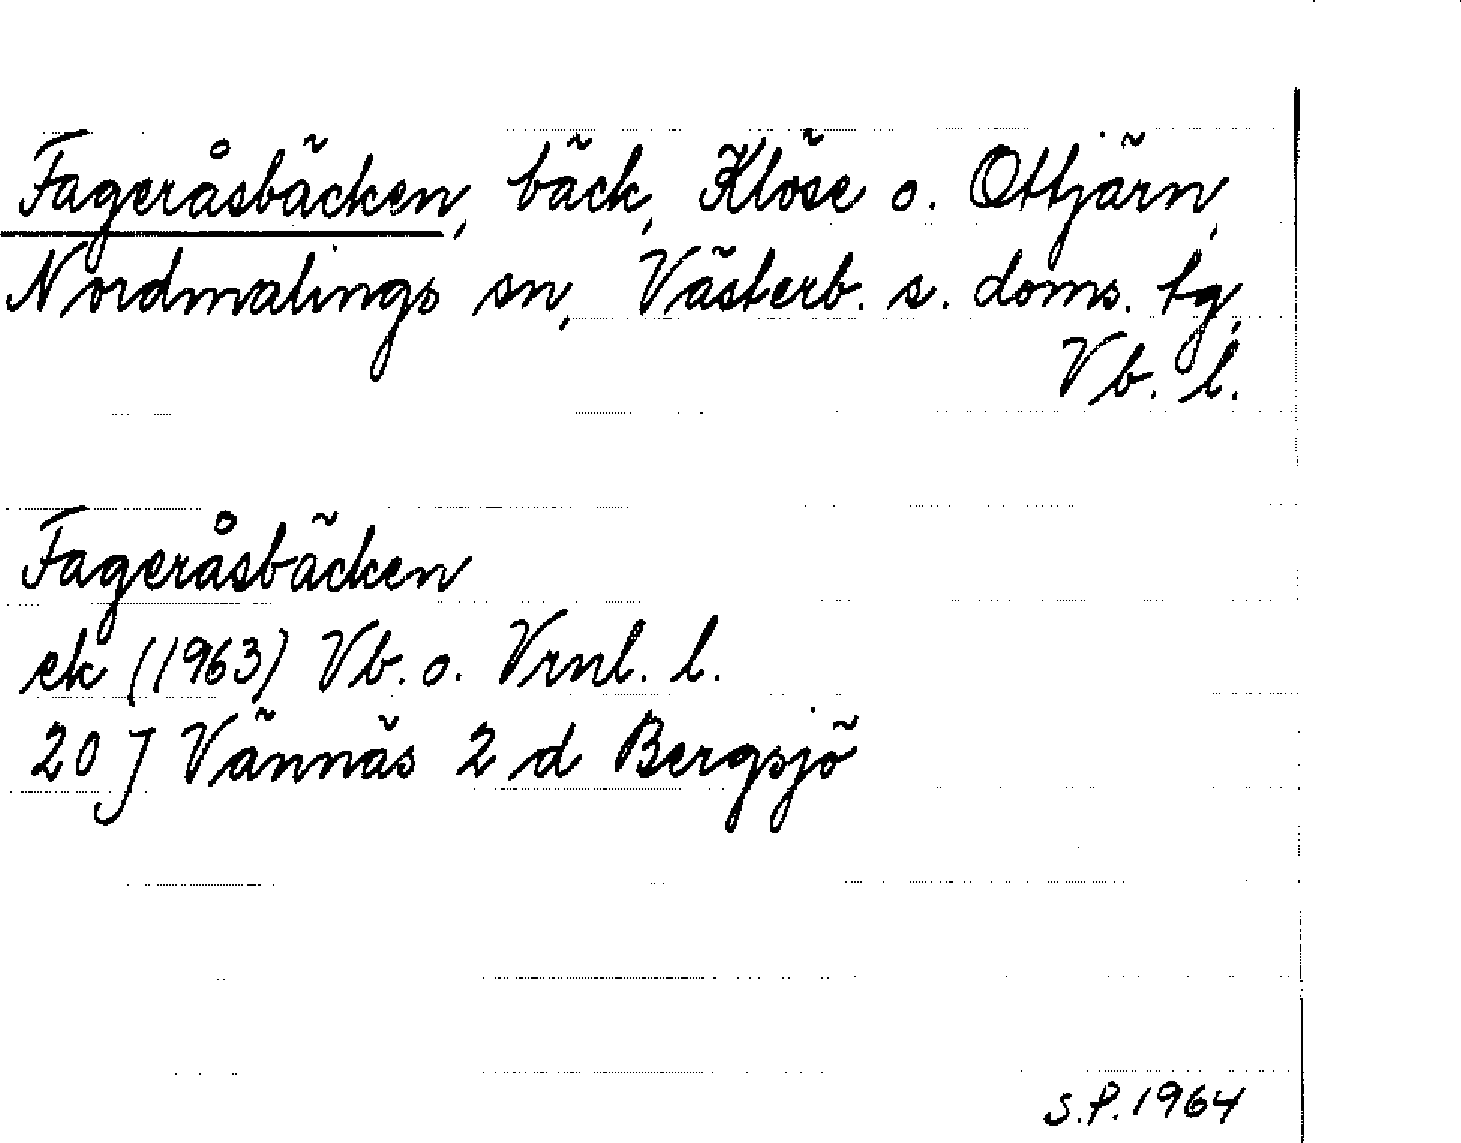 Fageråsbäcken, bäck, Klöse o. Ottjärn,
Nordmalings sn, Västerb. s. doms. tg,
Vb. l.
Fageråsbäcken
ek (1963) Vb. o. Vrnl. l.
20 J Vännäs 2 d Bergsjö
S.P. 1964